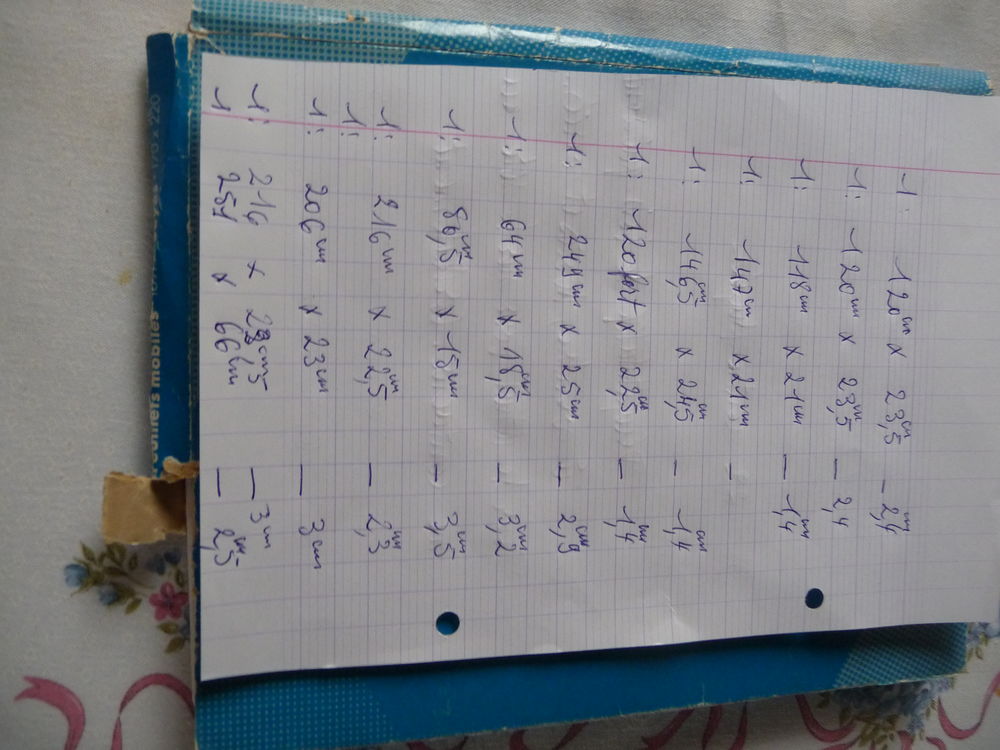 1: 120cm x 23,5cm — 2,4cm
1: 120cm x 23,5cm — 2,4
1: 118cm x 21cm — 1,4cm
1: 147cm x 21cm —
1: 146,5cm x 24,5cm — 1,4cm
1: 120 fort x 22,5cm — 1,4cm
1: 249cm x 25cm — 2,9cm
1: 64cm x 18,5cm — 3,2cm
1: 86,5cm x 15cm — 3,5cm
1: 216cm x 22,5cm — 2,3cm
1:
1: 206cm x 23cm — 3cm
1: 216 x — 3cm
1 x 66cm — 2,5cm
mobiles
x 220